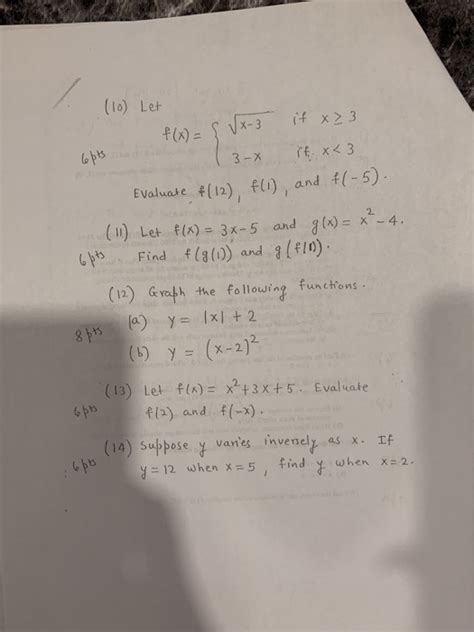 (10) Let
f(x) = { √x-3 if x ≥ 3
6 pts
3-x if x < 3
Evaluate f(12), f(1), and f(-5).
(11) Let f(x) = 3x-5 and g(x) = x²-4.
6 pts. Find f(g(1)) and g(f(1)).
(12) Graph the following functions.
(a) y = |x| + 2
8 pts
(b) y = (x-2)²
(13) Let f(x) = x²+3x+5. Evaluate
6 pts f(2) and f(-x).
(14) Suppose y varies inversely as x. If
6 pts y = 12 when x = 5, find y when x = 2.